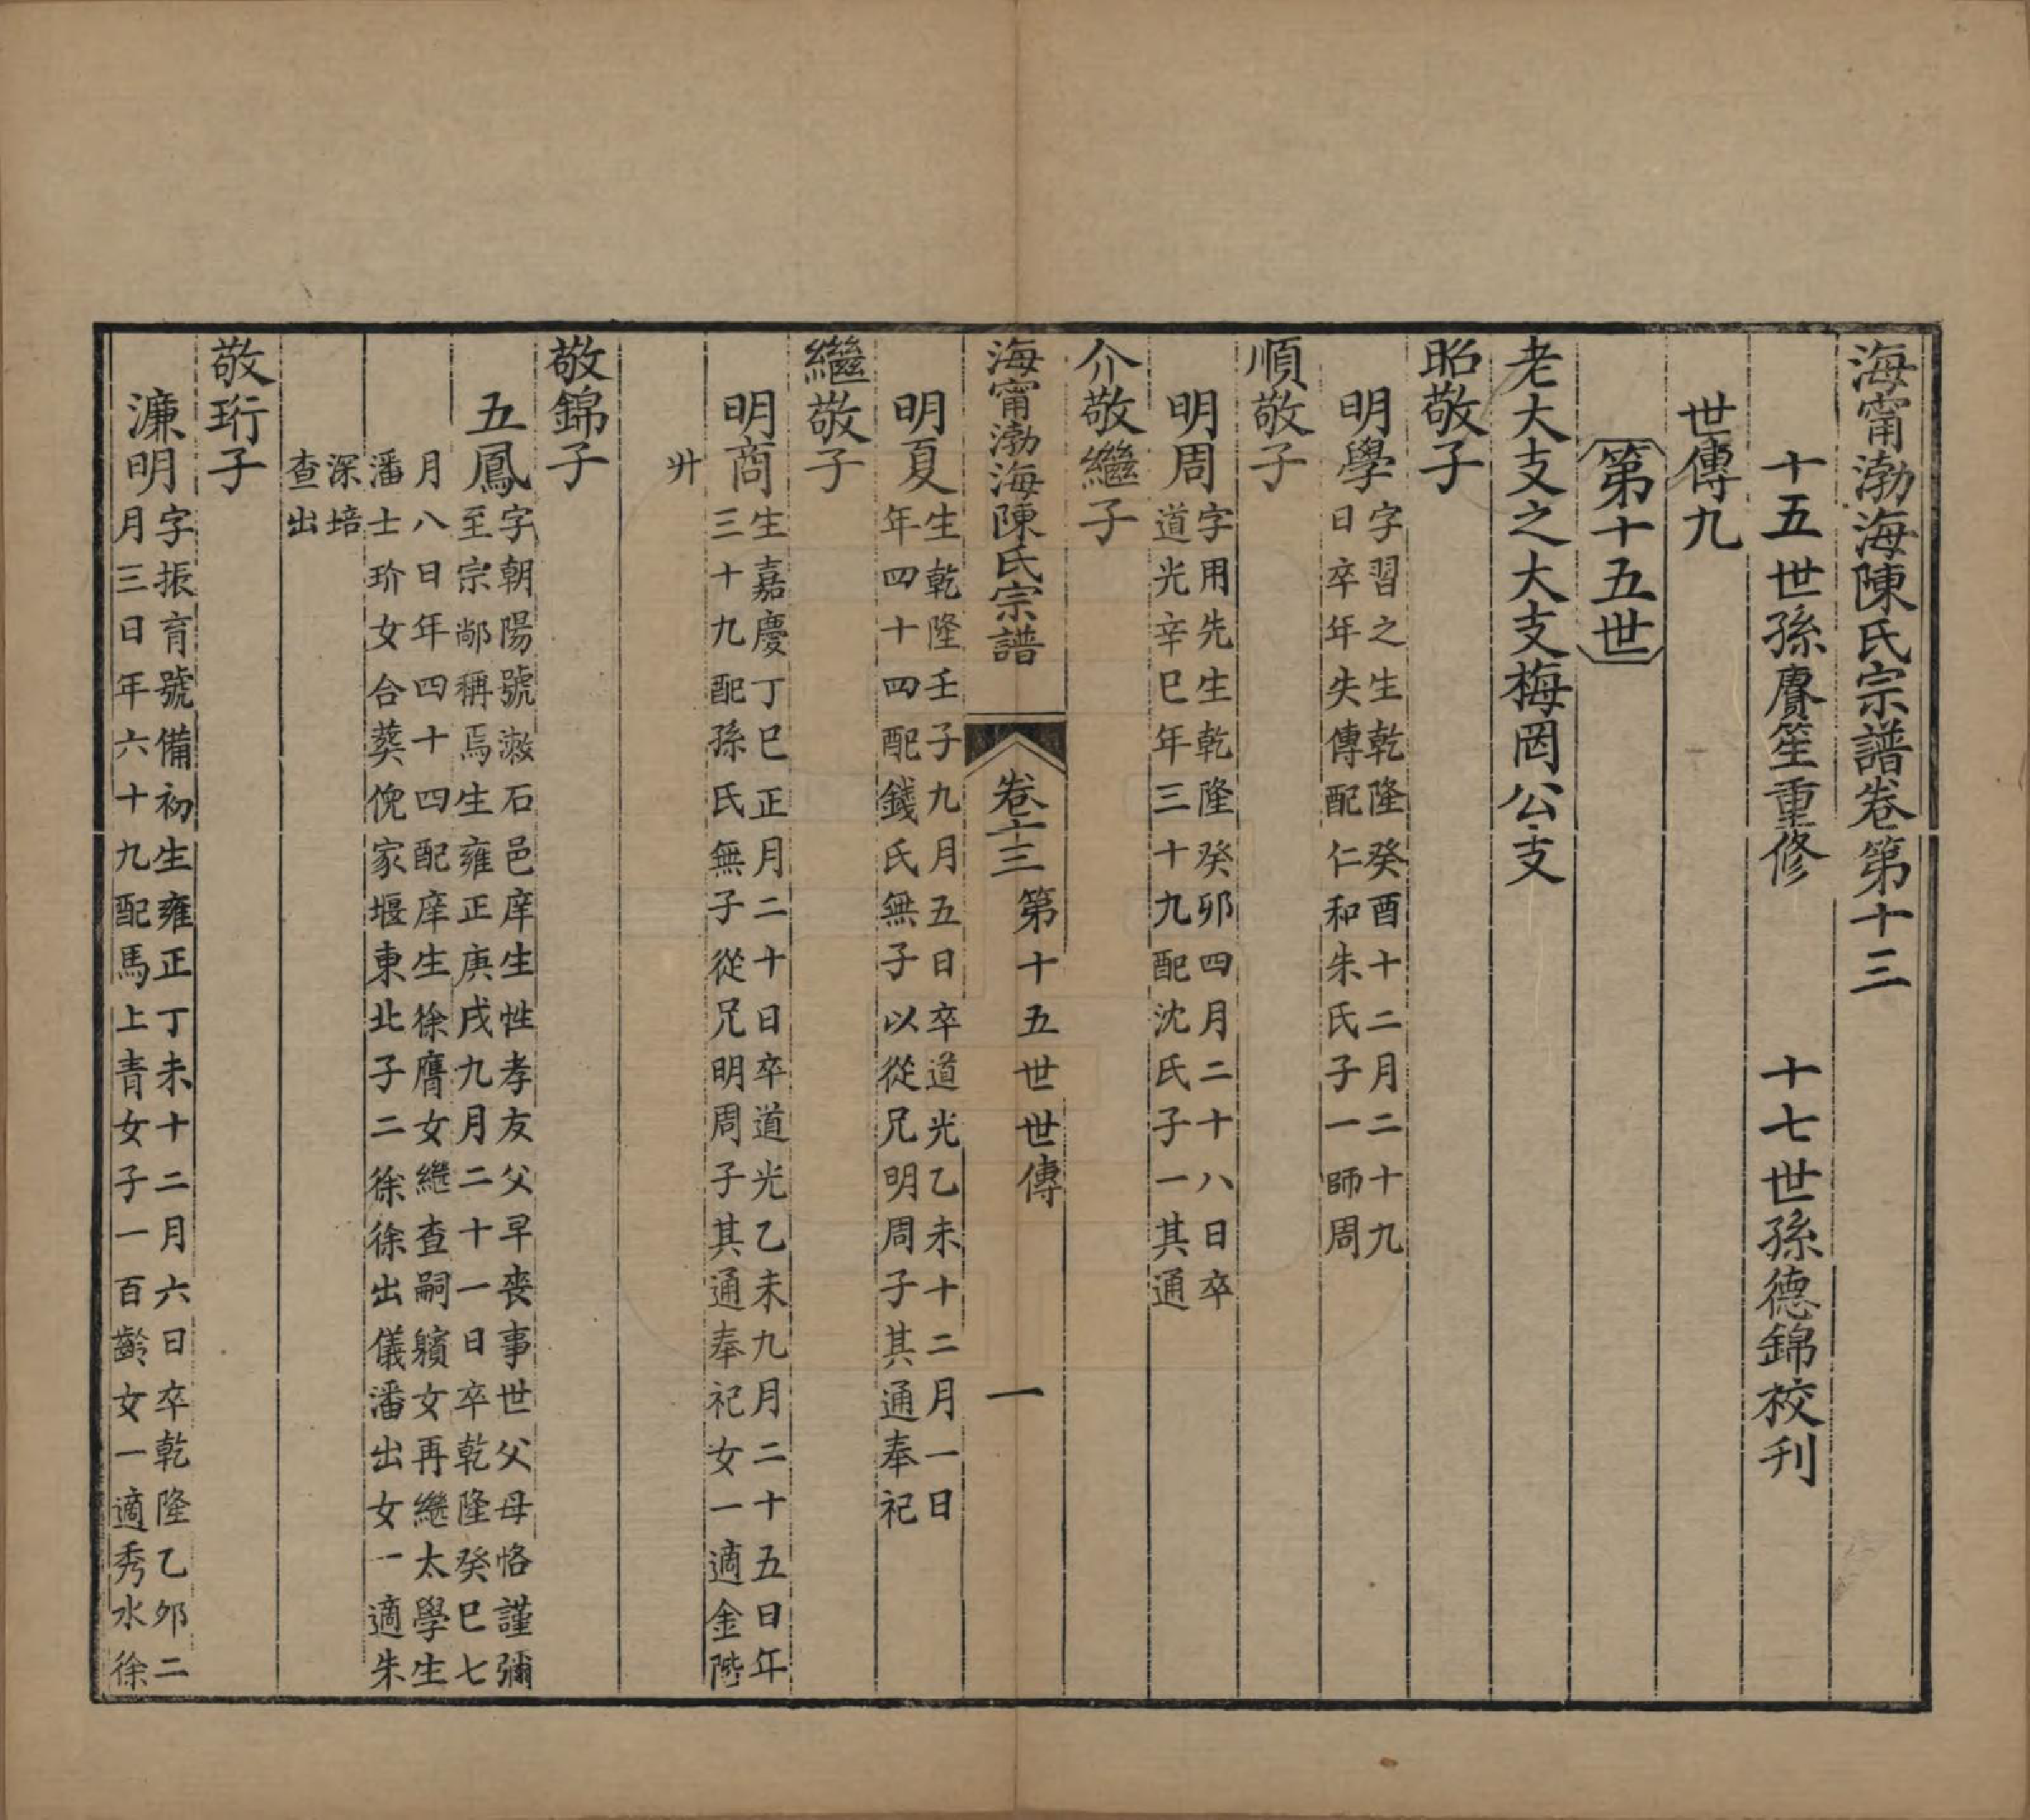 海甯渤海陳氏宗譜卷第十三
十五世孫賡笙重修　十七世孫德錦校刊
世傳九
第十五世
老大支之大支梅岡公支
昭敬子
明學
字習之生乾隆癸酉十二月二十九
日卒年失傳配仁和朱氏子一師周
順敬子
明周
字用先生乾隆癸卯四月二十八日卒
道光辛巳年三十九配沈氏子一其通
介敬繼子
海甯渤海陳氏宗譜
卷十三　第十五世世傳
一
明夏
生乾隆壬子九月五日卒道光乙未十二月一日
年四十四配錢氏無子以從兄明周子其通奉祀
繼敬子
明商
生嘉慶丁巳正月二十日卒道光乙未九月二十五日年
三十九配孫氏無子從兄明周子其通奉祀女一適金階
升
敬錦子
五鳳
字朝陽號漱石邑庠生性孝友父早喪事世父母恪謹彌
至宗鄰稱焉生雍正庚戌九月二十一日卒乾隆癸巳七
月八日年四十四配庠生徐膺女繼查嗣繽女再繼太學生
潘士玠女合葬倪家堰東北子二徐徐出儀潘出女一適朱
深培
查出
敬珩子
濂明
字振育號備初生雍正丁未十二月六日卒乾隆乙邜二
月三日年六十九配馬上青女子一百齡女一適秀水徐